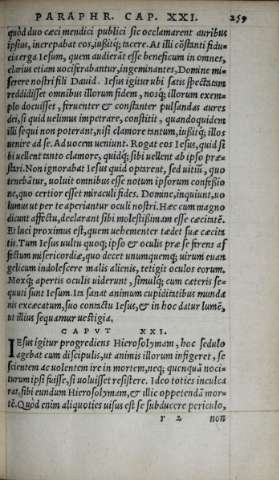 PARAPHR. CAP. XXI. 259
quòd duo cæci mendici publici sic occlamarent auribus
ipsius, increpabat eos, iußitq́; tacere. At illi cōstanti fidu
cia erga Iesum, quem audierāt esse beneficum in omnes,
clarius etiam uociferabantur, ingeminantes, Domine mi
serere nostri fili Dauid. Iesus igitur ubi satis spectatum
reddidisset omnibus illorum fidem, nosq́; illorum exem-
plo docuisset, feruenter & constanter pulsandas aures
dei, si quid uelimus impetrare, constitit, quandoquidem
illi sequi non poterant, nisi clamore tantum, iußitq́; illos
uenire ad se. Aduocem ueniunt. Rogat eos Iesus, quid si
bi uellent tanto clamore, quidq́; sibi uellent ab ipso præ-
stari. Non ignorabat Iesus quid optarent, sed uitiū, quo
tenebātur, uoluit omnibus esse notum ipsorum confeßio
ne, quo certior esset miraculi fides. Domine, inquiunt, uo
lumus ut per te aperiantur oculi nostri. Hæc cum magno
dicunt affectu, declarant sibi molestißimam esse cæcitatē.
Et luci proximus est, quem uehementer tædet suæ cæcita
tis. Tum Iesus uultu quoq; ipso & oculis præ se ferens af
fectum misericordiæ, quo decet unumquemq; uirum euan
gelicum indolescere malis alienis, tetigit oculos eorum.
Moxq́; apertis oculis uiderunt, simulq́; cum cæteris se-
quuti sunt Iesum. Ita sanat animum cupiditatibus munda
nis excæcatum, suo contactu Iesus, & in hoc datur lumē,
ut illius sequamur uestigia.
CAPVT XXI.
IEsus igitur progrediens Hierosolymam, hoc sedulo
agebat cum discipulis, ut animis illorum infigeret, se
scientem ac uolentem ire in mortem, neq; quenquā noci-
turum ipsi fuisse, si uoluisset resistere. Ideo toties inculca
rat, sibi eundum Hierosolymam, & illic oppetendā mor-
tē. Quòd enim aliquoties uisus est se subducere periculo,
r 2 non